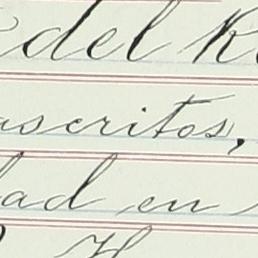 del R
uscritos,
ad en
H